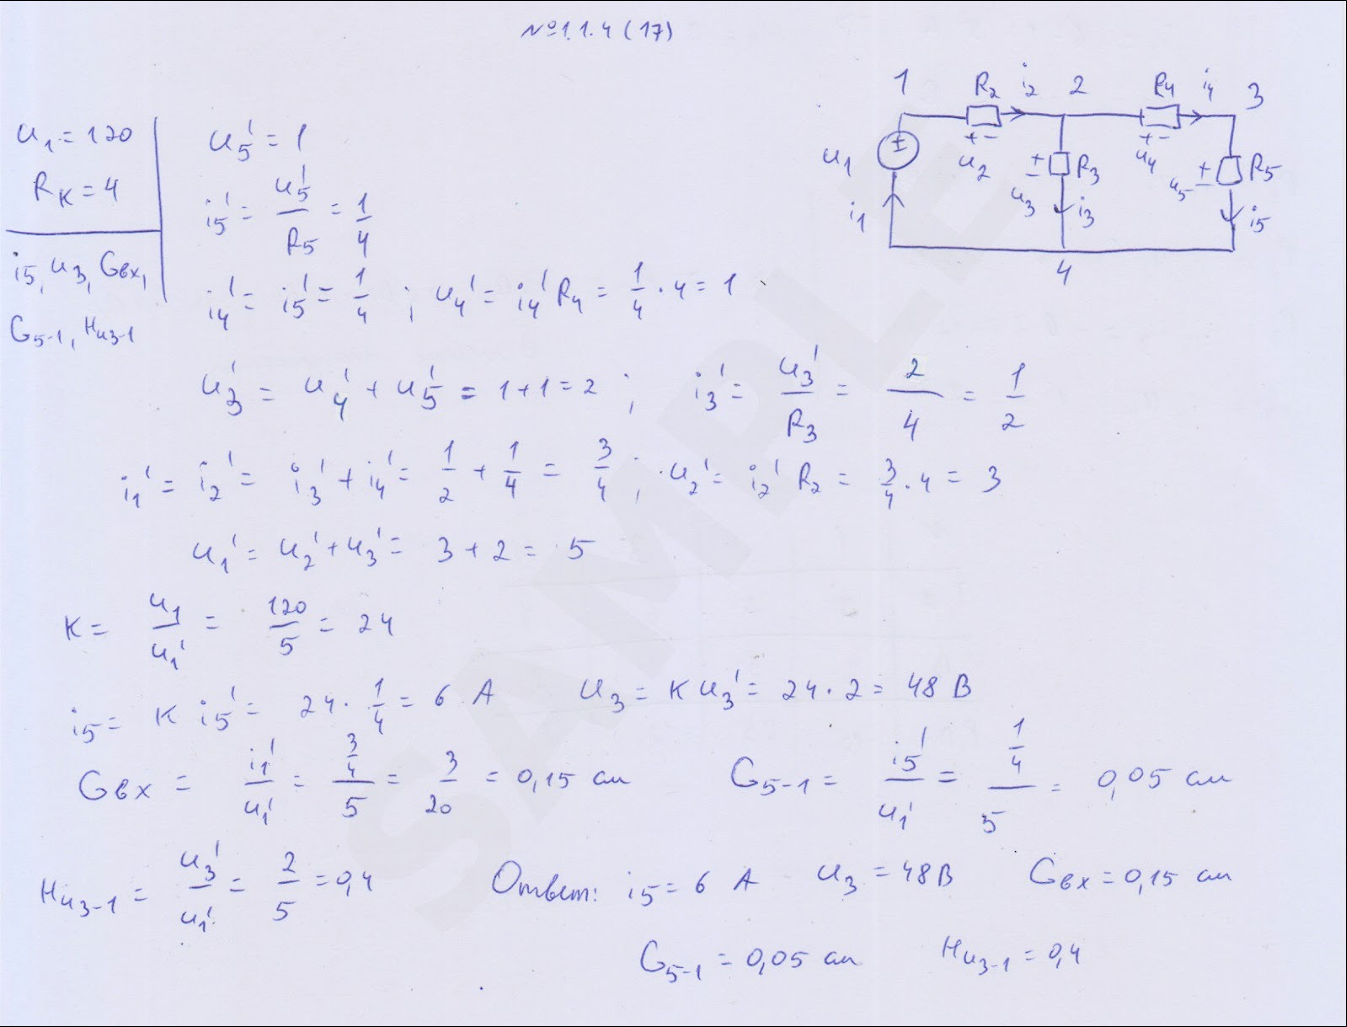 №1.1.4 (17)
u₁ = 120
Rк = 4
i₅, u₃, Gвх,
G₅₋₁, Hu₃₋₁
1 R₂ i₂ 2 R₄ i₄ 3
u₁ + - u₂ + - u₃ R₃ + - u₄ + - u₅ R₅
i₁ i₃ i₅
4
u₅' = 1
i₅' = u₅'/R₅ = 1/4
i₄' = i₅' = 1/4 ; u₄' = i₄' R₄ = 1/4 · 4 = 1
u₃' = u₄' + u₅' = 1+1 = 2 ; i₃' = u₃'/R₃ = 2/4 = 1/2
i₁' = i₂' = i₃' + i₄' = 1/2 + 1/4 = 3/4 ; u₂' = i₂' R₂ = 3/4 · 4 = 3
u₁' = u₂' + u₃' = 3 + 2 = 5
K = u₁/u₁' = 120/5 = 24
i₅ = K i₅' = 24 · 1/4 = 6 A u₃ = K u₃' = 24 · 2 = 48 В
Gвх = i₁'/u₁' = (3/4)/5 = 3/20 = 0,15 см G₅₋₁ = i₅'/u₁' = (1/4)/5 = 0,05 см
Hu₃₋₁ = u₃'/u₁' = 2/5 = 0,4
Ответ: i₅ = 6 A u₃ = 48 В Gвх = 0,15 см
G₅₋₁ = 0,05 см Hu₃₋₁ = 0,4
SAMPLE